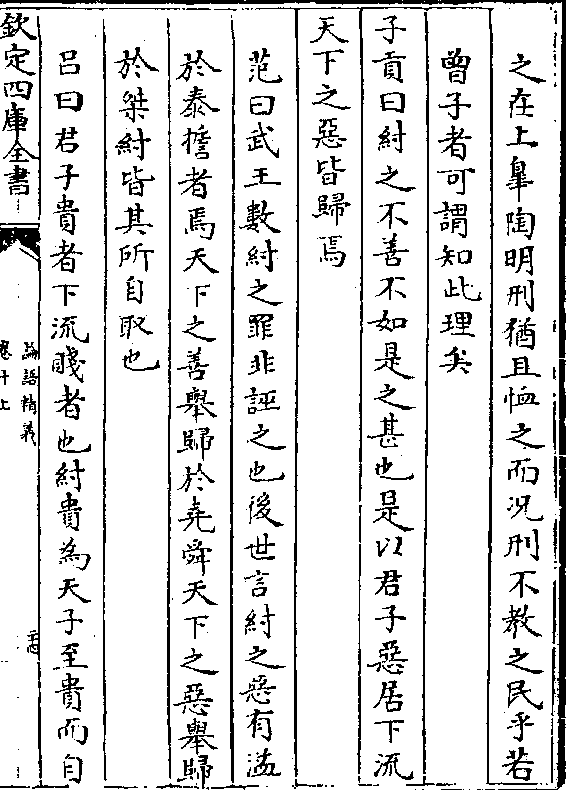 之在上皐陶明刑猶且恤之而况刑不教之民乎若
曾子者可謂知此理矣
子貢曰紂之不善不如是之甚也是以君子惡居下流
天下之惡皆歸焉
范曰武王數紂之罪非誣之也後世言紂之惡有溢
於泰誓者焉天下之善舉歸於堯舜天下之惡舉歸
於桀紂皆其所自取也
吕曰君子貴者下流賤者也紂貴為天子至貴而自
欽定四庫全書
論語精義
卷十上